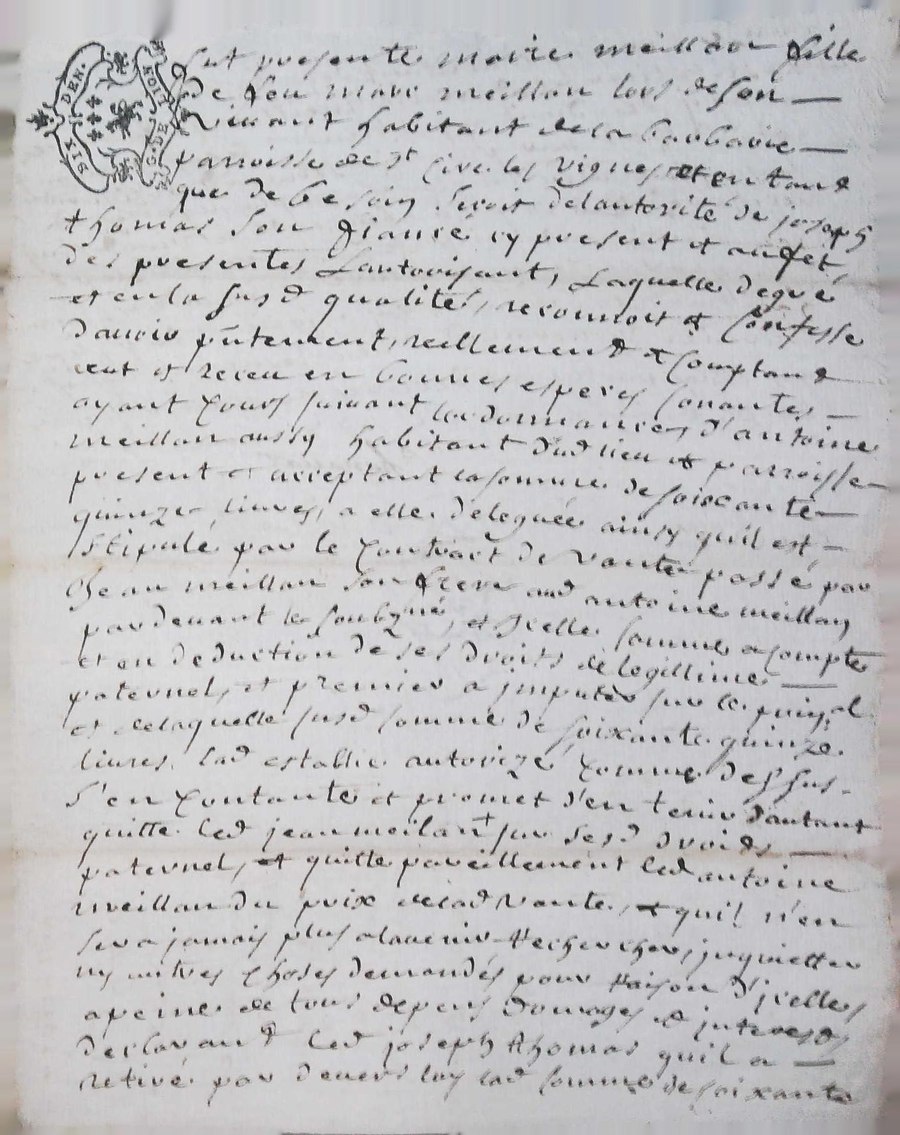 SIX DEN. NOIT G. DE
fut presente marie meillan fille
de feu marc meillan lors de son
vivant habitant de la barbarie
parroisse de st cive les vignes et en tant
que de besoin seroit de lautorité de joseph
thomas son fiance cy present et au fet
des presentes Lautorisant, Laquelle de gré
et en la susd qualité, reconnoit et Confesse
davoir pntement, reellement et Comptant
eut et receu en bonnes especes sonantes
ayant Cours suivant Lordonnances, d'antoine
meillan aussy habitant dud lieu et parroisse
present et acceptant la somme de soixante
quinze livres, a elle deleguée ainsy quil est
stipulé par le Contract de vante passé par
Jean meillan son frere aud antoine meillan
pardevant le soubzné, et Jcelle somme a compte
et en deduction de ses droits de legitime
paternel, et premier a jmputer sur le prinal
et de laquelle susd somme de soixante quinze
livres, lad establie autorizé Comme dessus
s'en Contante et promet d'en tenir dautant
quitte led jean meilan + sur sesd droids
paternel, et quitte pareillement led antoine
meillan du prix de lad vante, et quil n'en
sera jamais plus a lavenir Rechercher, jnquietter
ny autres Choses demandés pour Raison d'jcelles
a peine de tous depens domages et jnterests
declarant led joseph thomas quil a
retiré par devers luy lad somme de soixante